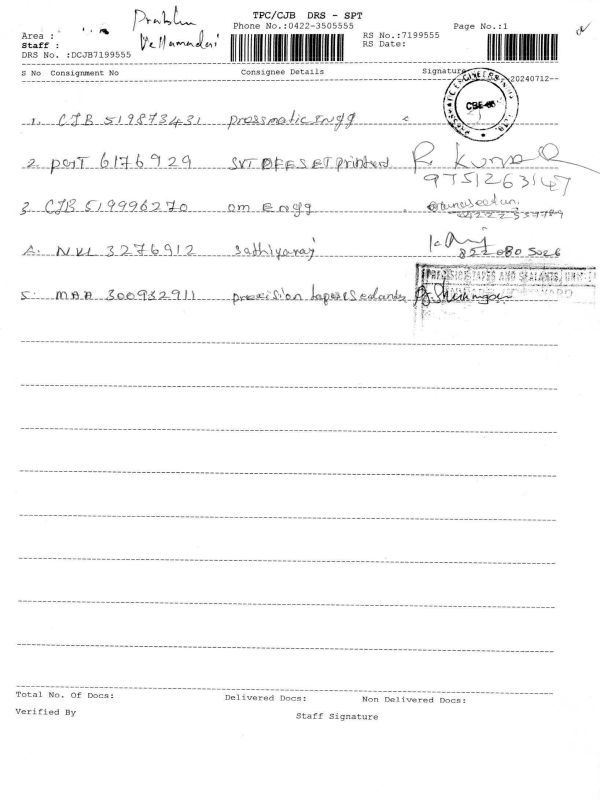 TPC/CJB DRS - SPT
Prabhu
Phone No.:0422-3505555 Page No.:1
Area :
RS No.:7199555
Staff : Vellamadai
RS Date:
DRS No. :DCJB7199555
S No Consignment No Consignee Details Signature 20240712--
CBE
1. CJB 519873431 pressmatic Engg
2. PORT 6176929 SVT OFFSET printers R. Kumar
9751263147
3. CJB 519996270 om Engg
4. NVL 3276912 Sathiyaraj
822 080 5026
PRECISION TAPES AND SEALANTS
5. MAA 300932911 precision tapes sealants
Total No. Of Docs: Delivered Docs: Non Delivered Docs:
Verified By
Staff Signature